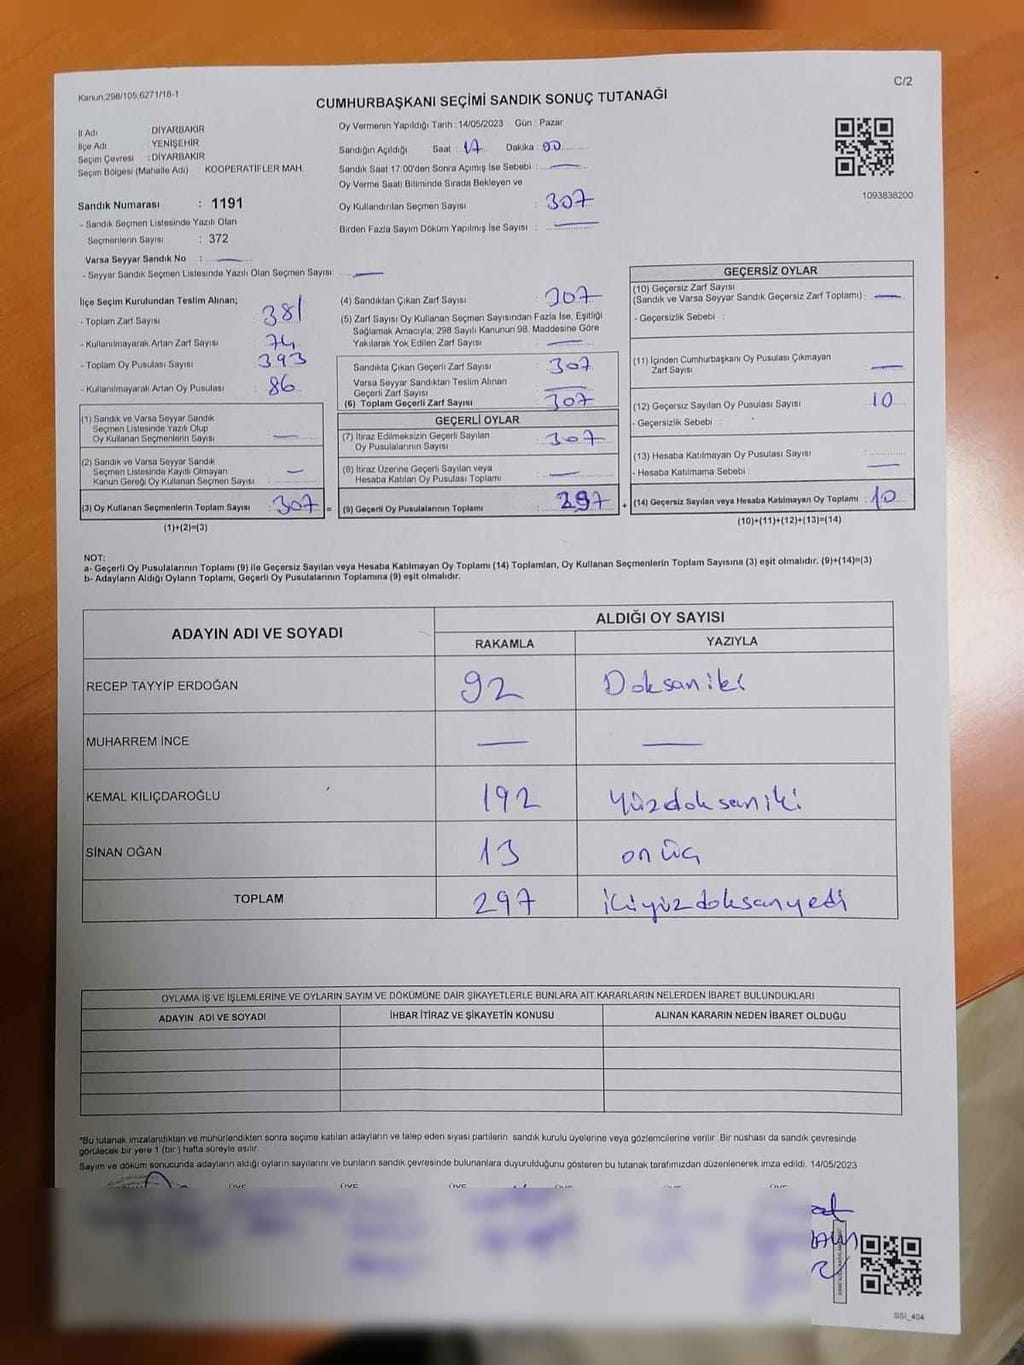 Kanun;298/105;6271/18-1
C/2
CUMHURBAŞKANI SEÇİMİ SANDIK SONUÇ TUTANAĞI
İl Adı : DİYARBAKIR
İlçe Adı YENİŞEHİR
Seçim Çevresi : DİYARBAKIR
Seçim Bölgesi (Mahalle Adı) KOOPERATİFLER MAH.
Sandık Numarası : 1191
- Sandık Seçmen Listesinde Yazılı Olan
Seçmenlerin Sayısı : 372
Varsa Seyyar Sandık No :
- Seyyar Sandık Seçmen Listesinde Yazılı Olan Seçmen Sayısı:
Oy Vermenin Yapıldığı Tarih : 14/05/2023 Gün : Pazar
Sandığın Açıldığı Saat : 17 Dakika : 00
Sandık Saat 17:00'den Sonra Açımış İse Sebebi :
Oy Verme Saati Bitiminde Sırada Bekleyen ve
Oy Kullandırılan Seçmen Sayısı : 307
Birden Fazla Sayım Döküm Yapılmış İse Sayısı :
1093838200
İlçe Seçim Kurulundan Teslim Alınan;
- Toplam Zarf Sayısı : 381
- Kullanılmayarak Artan Zarf Sayısı : 74
- Toplam Oy Pusulası Sayısı : 393
- Kullanılmayarak Artan Oy Pusulası : 86
(1) Sandık ve Varsa Seyyar Sandık
Seçmen Listesinde Yazılı Olup
Oy Kullanan Seçmenlerin Sayısı :
(2) Sandık ve Varsa Seyyar Sandık
Seçmen Listesinde Kayıtlı Olmayan
Kanun Gereği Oy Kullanan Seçmen Sayısı :
(3) Oy Kullanan Seçmenlerin Toplam Sayısı : 307 =
(1)+(2)=(3)
(4) Sandıktan Çıkan Zarf Sayısı : 307
(5) Zarf Sayısı Oy Kullanan Seçmen Sayısından Fazla İse, Eşitliği
Sağlamak Amacıyla; 298 Sayılı Kanunun 98. Maddesine Göre
Yakılarak Yok Edilen Zarf Sayısı :
Sandıkta Çıkan Geçerli Zarf Sayısı : 307
Varsa Seyyar Sandıktan Teslim Alınan
Geçerli Zarf Sayısı :
(6) Toplam Geçerli Zarf Sayısı : 307
GEÇERLİ OYLAR
(7) İtiraz Edilmeksizin Geçerli Sayılan
Oy Pusulalarının Sayısı : 307
(8) İtiraz Üzerine Geçerli Sayılan veya
Hesaba Katılan Oy Pusulası Toplamı :
(9) Geçerli Oy Pusulalarının Toplamı : 297 +
GEÇERSİZ OYLAR
(10) Geçersiz Zarf Sayısı
(Sandık ve Varsa Seyyar Sandık Geçersiz Zarf Toplamı) :
- Geçersizlik Sebebi :
(11) İçinden Cumhurbaşkanı Oy Pusulası Çıkmayan
Zarf Sayısı :
(12) Geçersiz Sayılan Oy Pusulası Sayısı : 10
- Geçersizlik Sebebi :
(13) Hesaba Katılmayan Oy Pusulası Sayısı :
- Hesaba Katılmama Sebebi :
(14) Geçersiz Sayılan veya Hesaba Katılmayan Oy Toplamı : 10
(10)+(11)+(12)+(13)=(14)
NOT:
a- Geçerli Oy Pusulalarının Toplamı (9) ile Geçersiz Sayılan veya Hesaba Katılmayan Oy Toplamı (14) Toplamları, Oy Kullanan Seçmenlerin Toplam Sayısına (3) eşit olmalıdır. (9)+(14)=(3)
b- Adayların Aldığı Oyların Toplamı, Geçerli Oy Pusulalarının Toplamına (9) eşit olmalıdır.
ADAYIN ADI VE SOYADI ALDIĞI OY SAYISI
RAKAMLA YAZIYLA
RECEP TAYYİP ERDOĞAN 92 Doksaniki
MUHARREM İNCE
KEMAL KILIÇDAROĞLU 192 Yüzdoksaniki
SİNAN OĞAN 13 onüç
TOPLAM 297 ikiyüzdoksanyedi
OYLAMA İŞ VE İŞLEMLERİNE VE OYLARIN SAYIM VE DÖKÜMÜNE DAİR ŞİKAYETLERLE BUNLARA AİT KARARLARIN NELERDEN İBARET BULUNDUKLARI
ADAYIN ADI VE SOYADI İHBAR İTİRAZ VE ŞİKAYETİN KONUSU ALINAN KARARIN NEDEN İBARET OLDUĞU
*Bu tutanak imzalandıktan ve mühürlendikten sonra seçime katılan adayların ve talep eden siyasi partilerin sandık kurulu üyelerine veya gözlemcilerine verilir. Bir nüshası da sandık çevresinde
görülecek bir yere 1 (bir) hafta süreyle asılır.
Sayım ve döküm sonucunda adayların aldığı oyların sayılarını ve bunların sandık çevresinde bulunanlara duyurulduğunu gösteren bu tutanak tarafımızdan düzenlenerek imza edildi. 14/05/2023